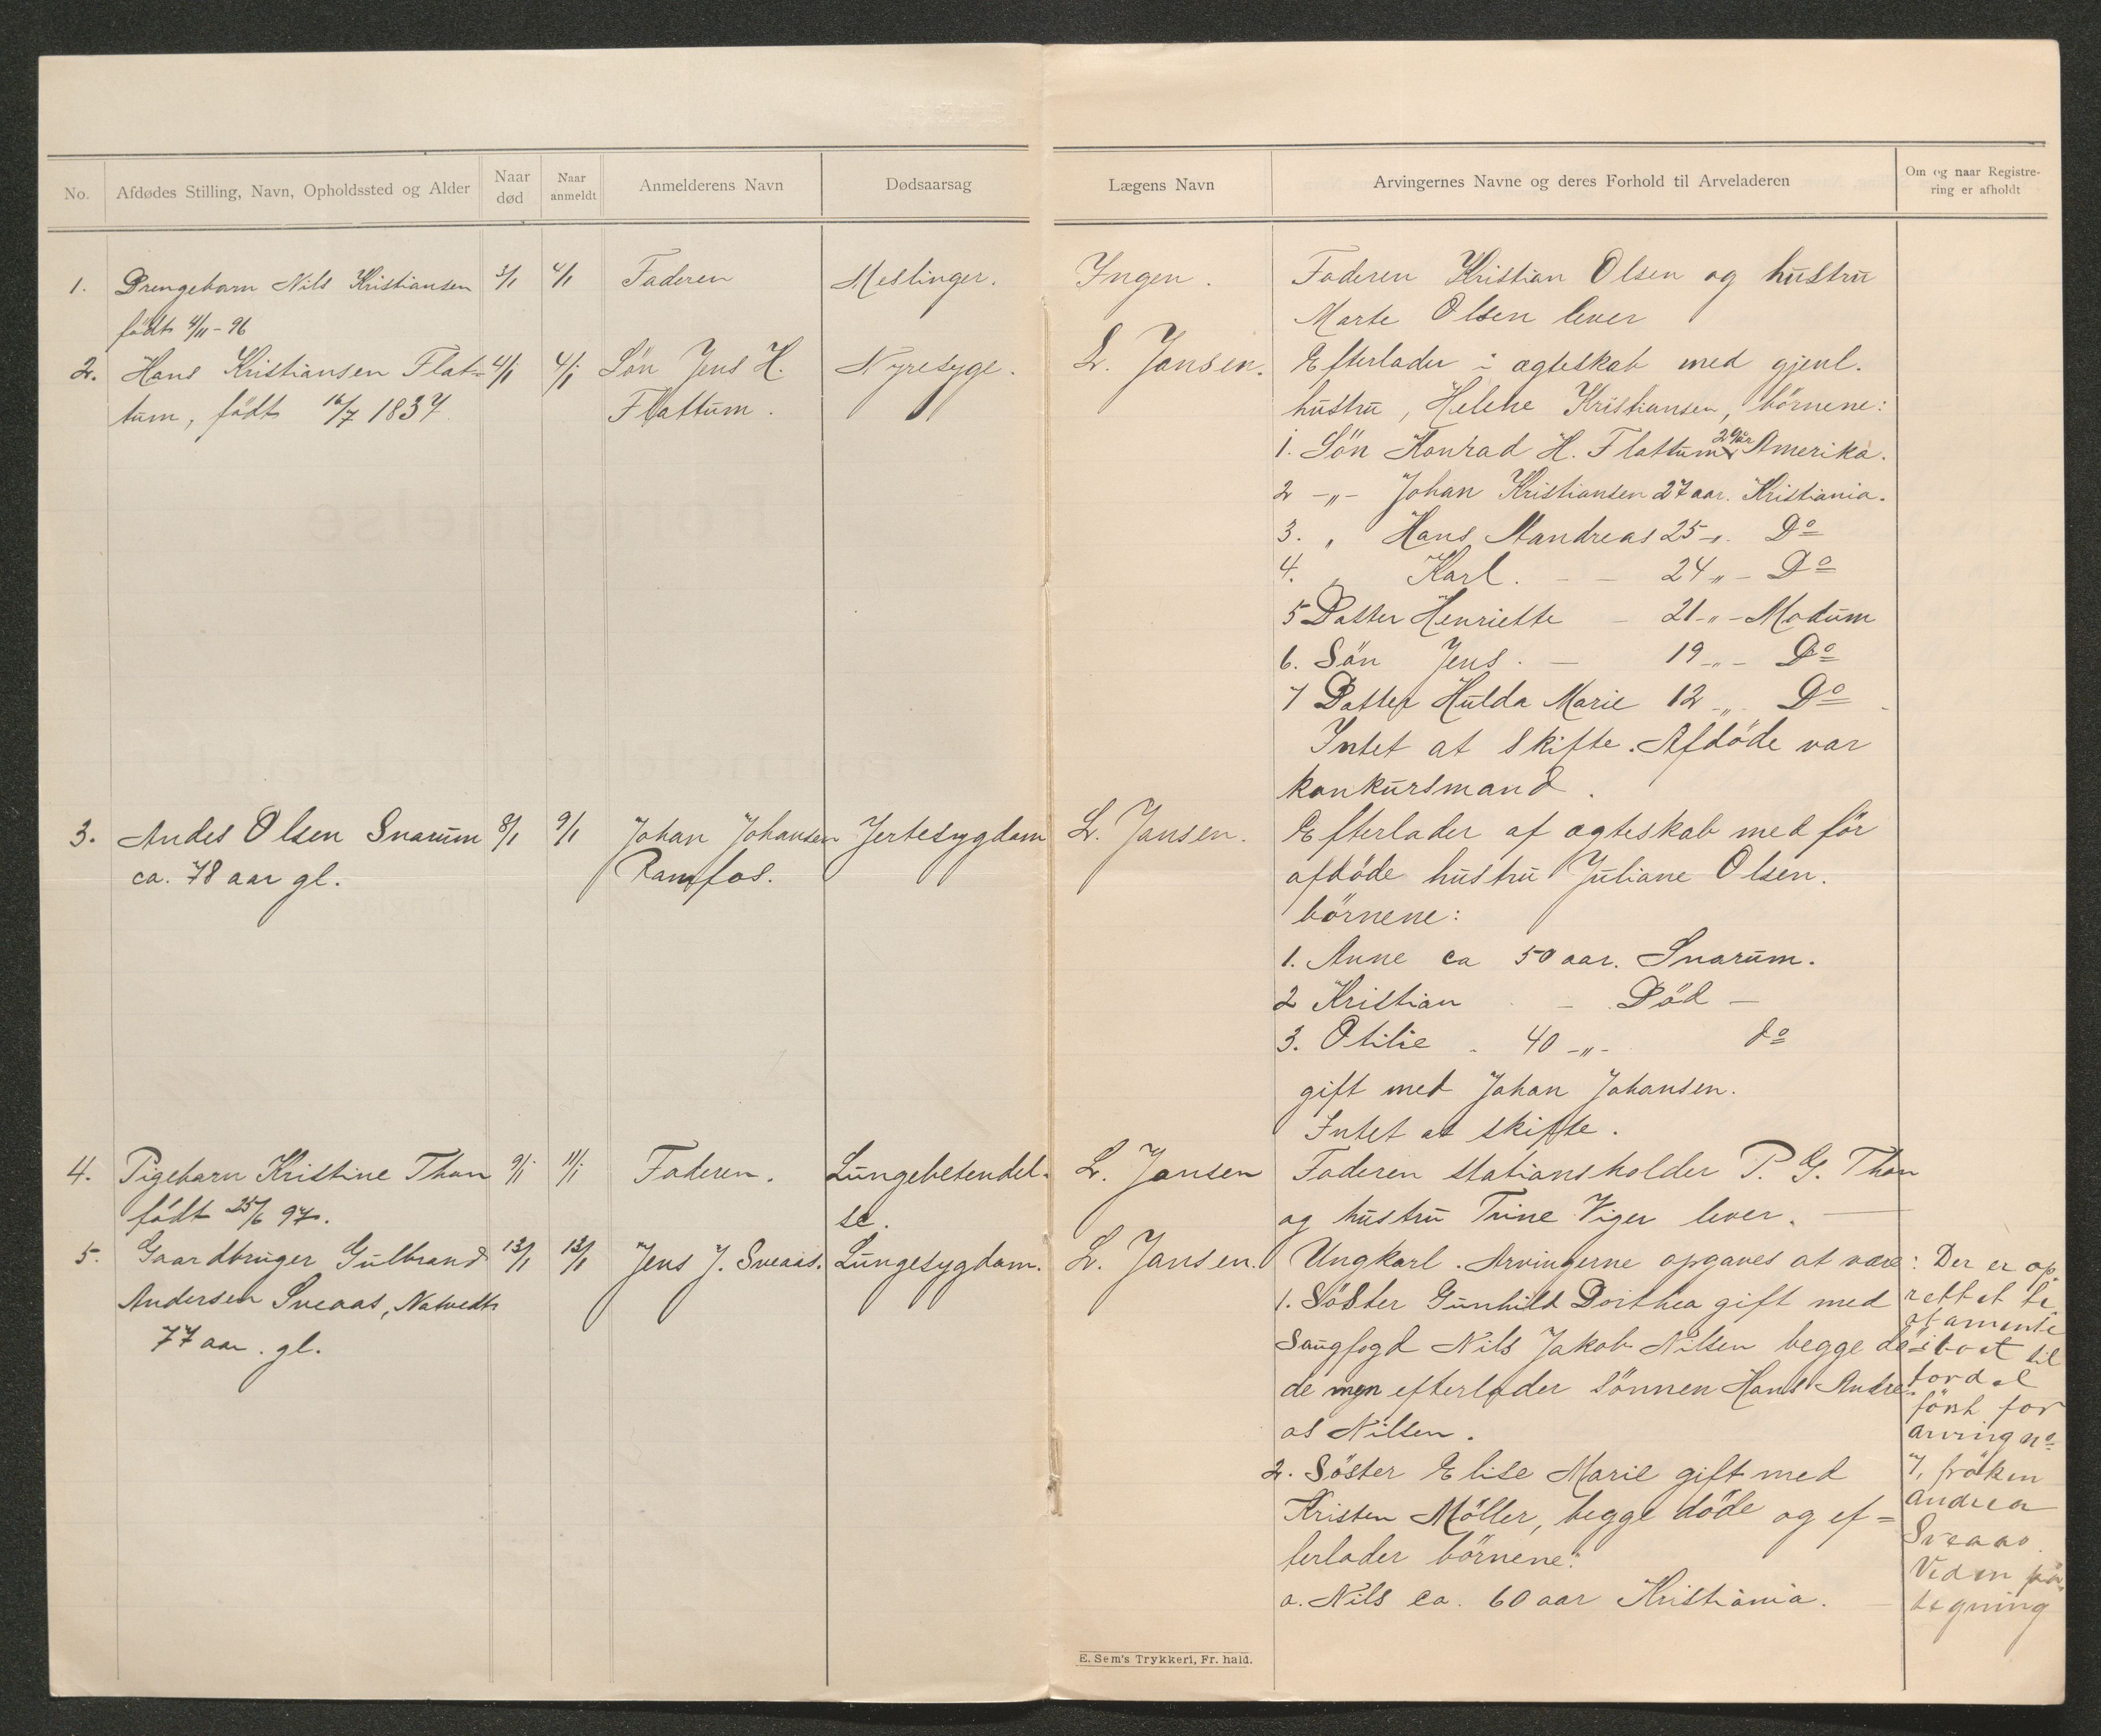 No.
Afdødes Stilling, Navn, Opholdssted og Alder
Naar død
Naar anmeldt
Anmelderens Navn
Dødsaarsag
Lægens Navn
Arvingernes Navne og deres Forhold til Arveladeren
Om og naar Registre-
ring er afholdt
1. Drengebarn Nils Kristiansen 3/1 4/1 Faderen Meslinger. Ingen. Faderen Kristian Olsen og hustru
født 4/11-96 Marte Olsen lever
2. Hans Kristiansen Flat= 4/1 4/1 Søn Jens H. Nyresyge. L. Jansen. Efterlader i ægteskab med gjenl.
tum, født 16/7 1837. Flattum. hustru, Helene Kristiansen, børnene:
1. Søn Konrad H. Flattum 29 år Amerika.
2 -„- Johan Kristiansen 27 aar. Kristiania.
3. „ Hans Mandreas 25 -„. Do
4. „ Karl. – – 24 „- Do
5 Datter Henriette – 21-„- Modum
6. Søn Jens. – 19-„- Do
7 Datter Hulda Marie 12 -„- Do
Intet at skifte. Afdøde var
konkursmand.
3. Andes Olsen Snarum 8/1 9/1 Johan Johansen Jertesygdom L. Jansen. Efterlader af ægteskab med før
ca. 78 aar gl. Ramfos. afdøde hustru Juliane Olsen.
børnene:
1. Anne ca 50 aar. Snarum.
2 Kristian – Død –
3. Otilie . 40 -„- do
gift med Johan Johansen.
Intet at skifte.
4. Pigebarn Kristine Thon 9/1 11/1 Faderen. Lungebetendel- L. Jansen Faderen stationsholder P. G. Thon
født 25/6 97. se. og hustru Trine Viger lever. –
5. Gaardbruger Gulbrand 13/1 13/1 Jens J. Sveaas. Lungesygdom. L. Jansen. Ungkarl. Arvingerne opgaves at være:
Andersen Sveaas, Natvedt 1. Søster Gunhild Dorthea gift med
77 aar. gl. Saugfogd Nils Jakob Nilsen begge dø-
de men efterlader sønnen Hans Andre-
as Nilsen.
2. Søster Elise Marie gift med
Kristen Möller, begge døde og ef=
terlader børnene:
a. Nils ca. 60 aar Kristiania. –
Der er op-
rettet te
stamente
fordel
først for
arving No
7, frøken
Andrea
Sveaas.
tegning
E. Sem's Trykkeri, Fr. hald.